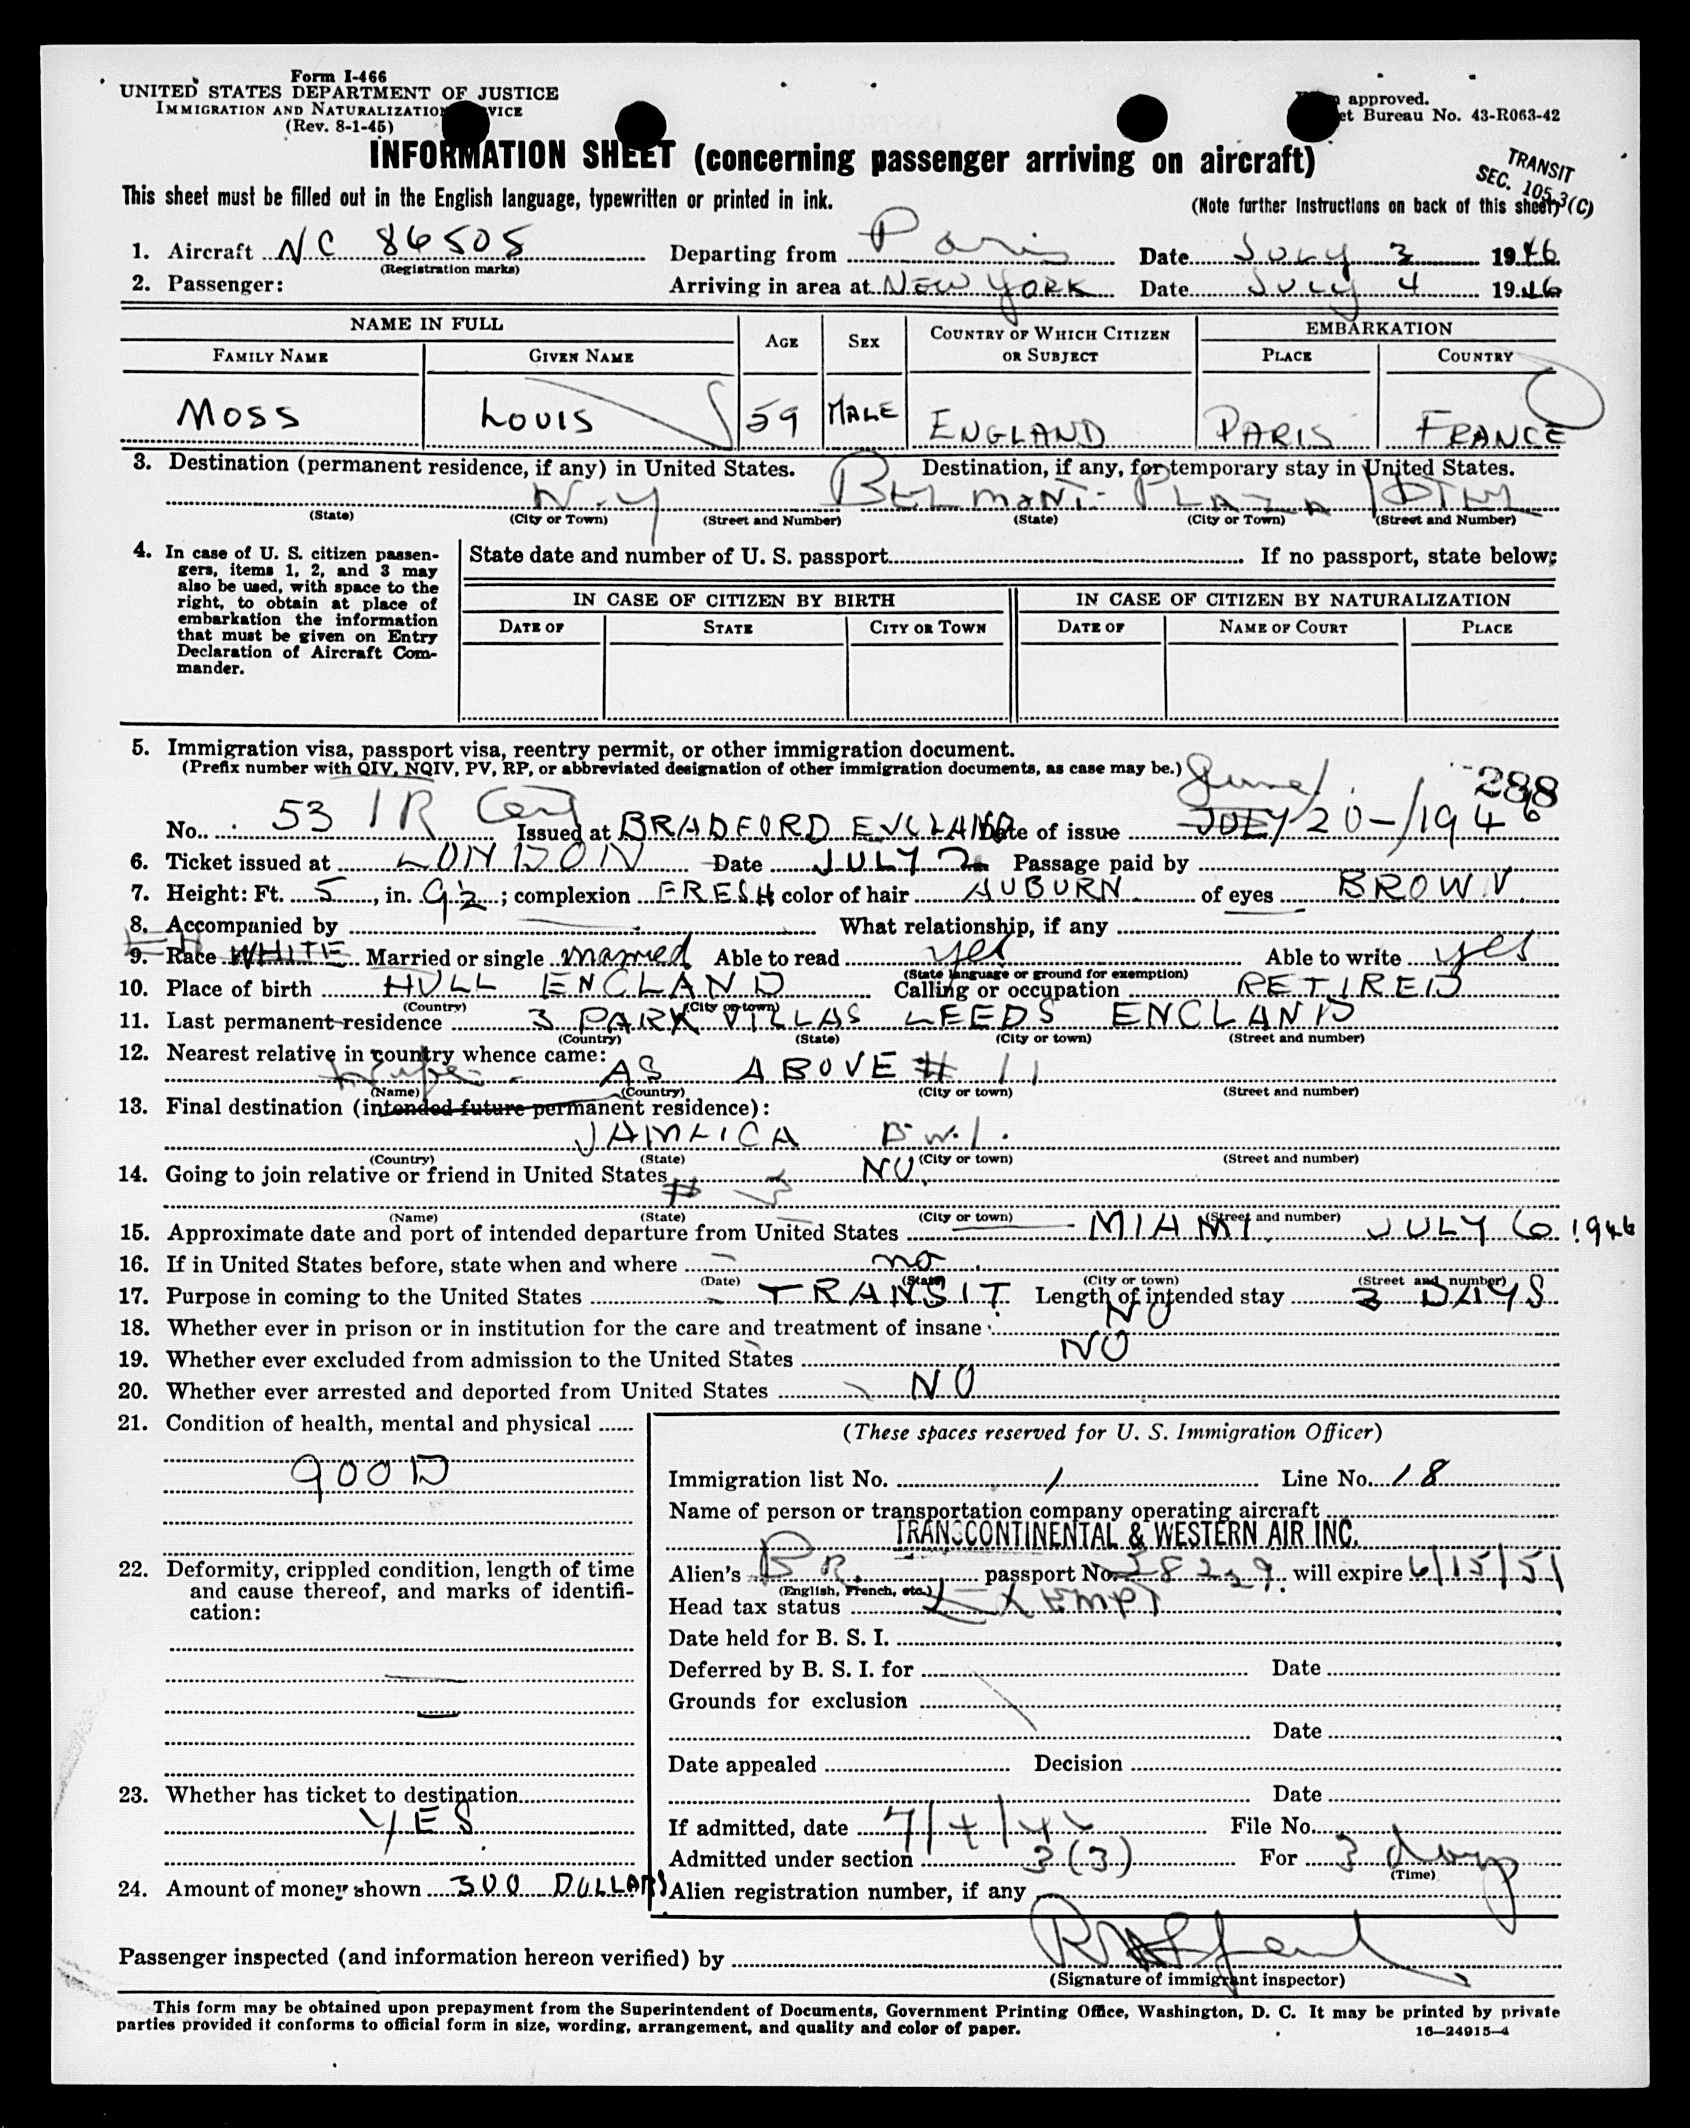 Form I-466
UNITED STATES DEPARTMENT OF JUSTICE
IMMIGRATION AND NATURALIZATION
VICE
(Rev. 8-1-45)
approved.
et Bureau No. 43-R063-42
INFORMATION SHEET (concerning passenger arriving on aircraft)
TRANSIT
SEC. 105.3(C)
This sheet must be filled out in the English language, typewritten or printed in ink.
(Note further Instructions on back of this sheet)
1. Aircraft NC 86505 Departing from Paris Date JULY 3 1946
(Registration marks)
2. Passenger: Arriving in area at NEW YORK Date JULY 4 1946
NAME IN FULL AGE SEX COUNTRY OF WHICH CITIZEN OR SUBJECT EMBARKATION
FAMILY NAME GIVEN NAME PLACE COUNTRY
MOSS LOUIS 59 MALE ENGLAND PARIS FRANCE
3. Destination (permanent residence, if any) in United States. Destination, if any, for temporary stay in United States.
N.Y BELMONT PLAZA HOTEL
(State) (City or Town) (Street and Number) (State) (City or Town) (Street and Number)
4. In case of U. S. citizen passen-
gers, items 1, 2, and 3 may
also be used, with space to the
right, to obtain at place of
embarkation the information
that must be given on Entry
Declaration of Aircraft Com-
mander.
State date and number of U. S. passport If no passport, state below:
IN CASE OF CITIZEN BY BIRTH IN CASE OF CITIZEN BY NATURALIZATION
DATE OF STATE CITY OR TOWN DATE OF NAME OF COURT PLACE
5. Immigration visa, passport visa, reentry permit, or other immigration document.
(Prefix number with QIV, NQIV, PV, RP, or abbreviated designation of other immigration documents, as case may be.)
June 288
No. 53 IR Cert Issued at BRADFORD ENGLAND Date of issue JULY 20-1946
6. Ticket issued at LONDON Date JULY 2 Passage paid by
7. Height: Ft. 5, in. 9½; complexion FRESH color of hair AUBURN of eyes BROWN
8. Accompanied by What relationship, if any
9. Race WHITE Married or single married Able to read yes Able to write yes
(State language or ground for exemption)
10. Place of birth HULL ENGLAND Calling or occupation RETIRED
(Country) (City or town)
11. Last permanent residence 3 PARK VILLAS LEEDS ENGLAND
(Country) (State) (City or town) (Street and number)
12. Nearest relative in country whence came:
Wife - AS ABOVE # 11
(Name) (Country) (City or town) (Street and number)
13. Final destination (intended future permanent residence):
JAMAICA B.W.I.
(Country) (State) (City or town) (Street and number)
14. Going to join relative or friend in United States NO
# 3
(Name) (State) (City or town) (Street and number)
15. Approximate date and port of intended departure from United States MIAMI JULY 6 1946
16. If in United States before, state when and where no
(Date) (State) (City or town) (Street and number)
17. Purpose in coming to the United States TRANSIT Length of intended stay 3 DAYS
18. Whether ever in prison or in institution for the care and treatment of insane NO
19. Whether ever excluded from admission to the United States NO
20. Whether ever arrested and deported from United States NO
21. Condition of health, mental and physical
GOOD
22. Deformity, crippled condition, length of time
and cause thereof, and marks of identifi-
cation:
23. Whether has ticket to destination
YES
24. Amount of money shown 300 DOLLARS
(These spaces reserved for U. S. Immigration Officer)
Immigration list No. 1 Line No. 18
Name of person or transportation company operating aircraft
TRANSCONTINENTAL & WESTERN AIR INC.
Alien's BR. passport No. 38229 will expire 6/15/51
(English, French, etc.)
Head tax status EXEMPT
Date held for B. S. I.
Deferred by B. S. I. for Date
Grounds for exclusion
Date
Date appealed Decision
Date
If admitted, date 7/4/46 File No.
Admitted under section 3(3) For 3 days
(Time)
Alien registration number, if any
Passenger inspected (and information hereon verified) by
(Signature of immigrant inspector)
This form may be obtained upon prepayment from the Superintendent of Documents, Government Printing Office, Washington, D. C. It may be printed by private
parties provided it conforms to official form in size, wording, arrangement, and quality and color of paper.
16—24915-4